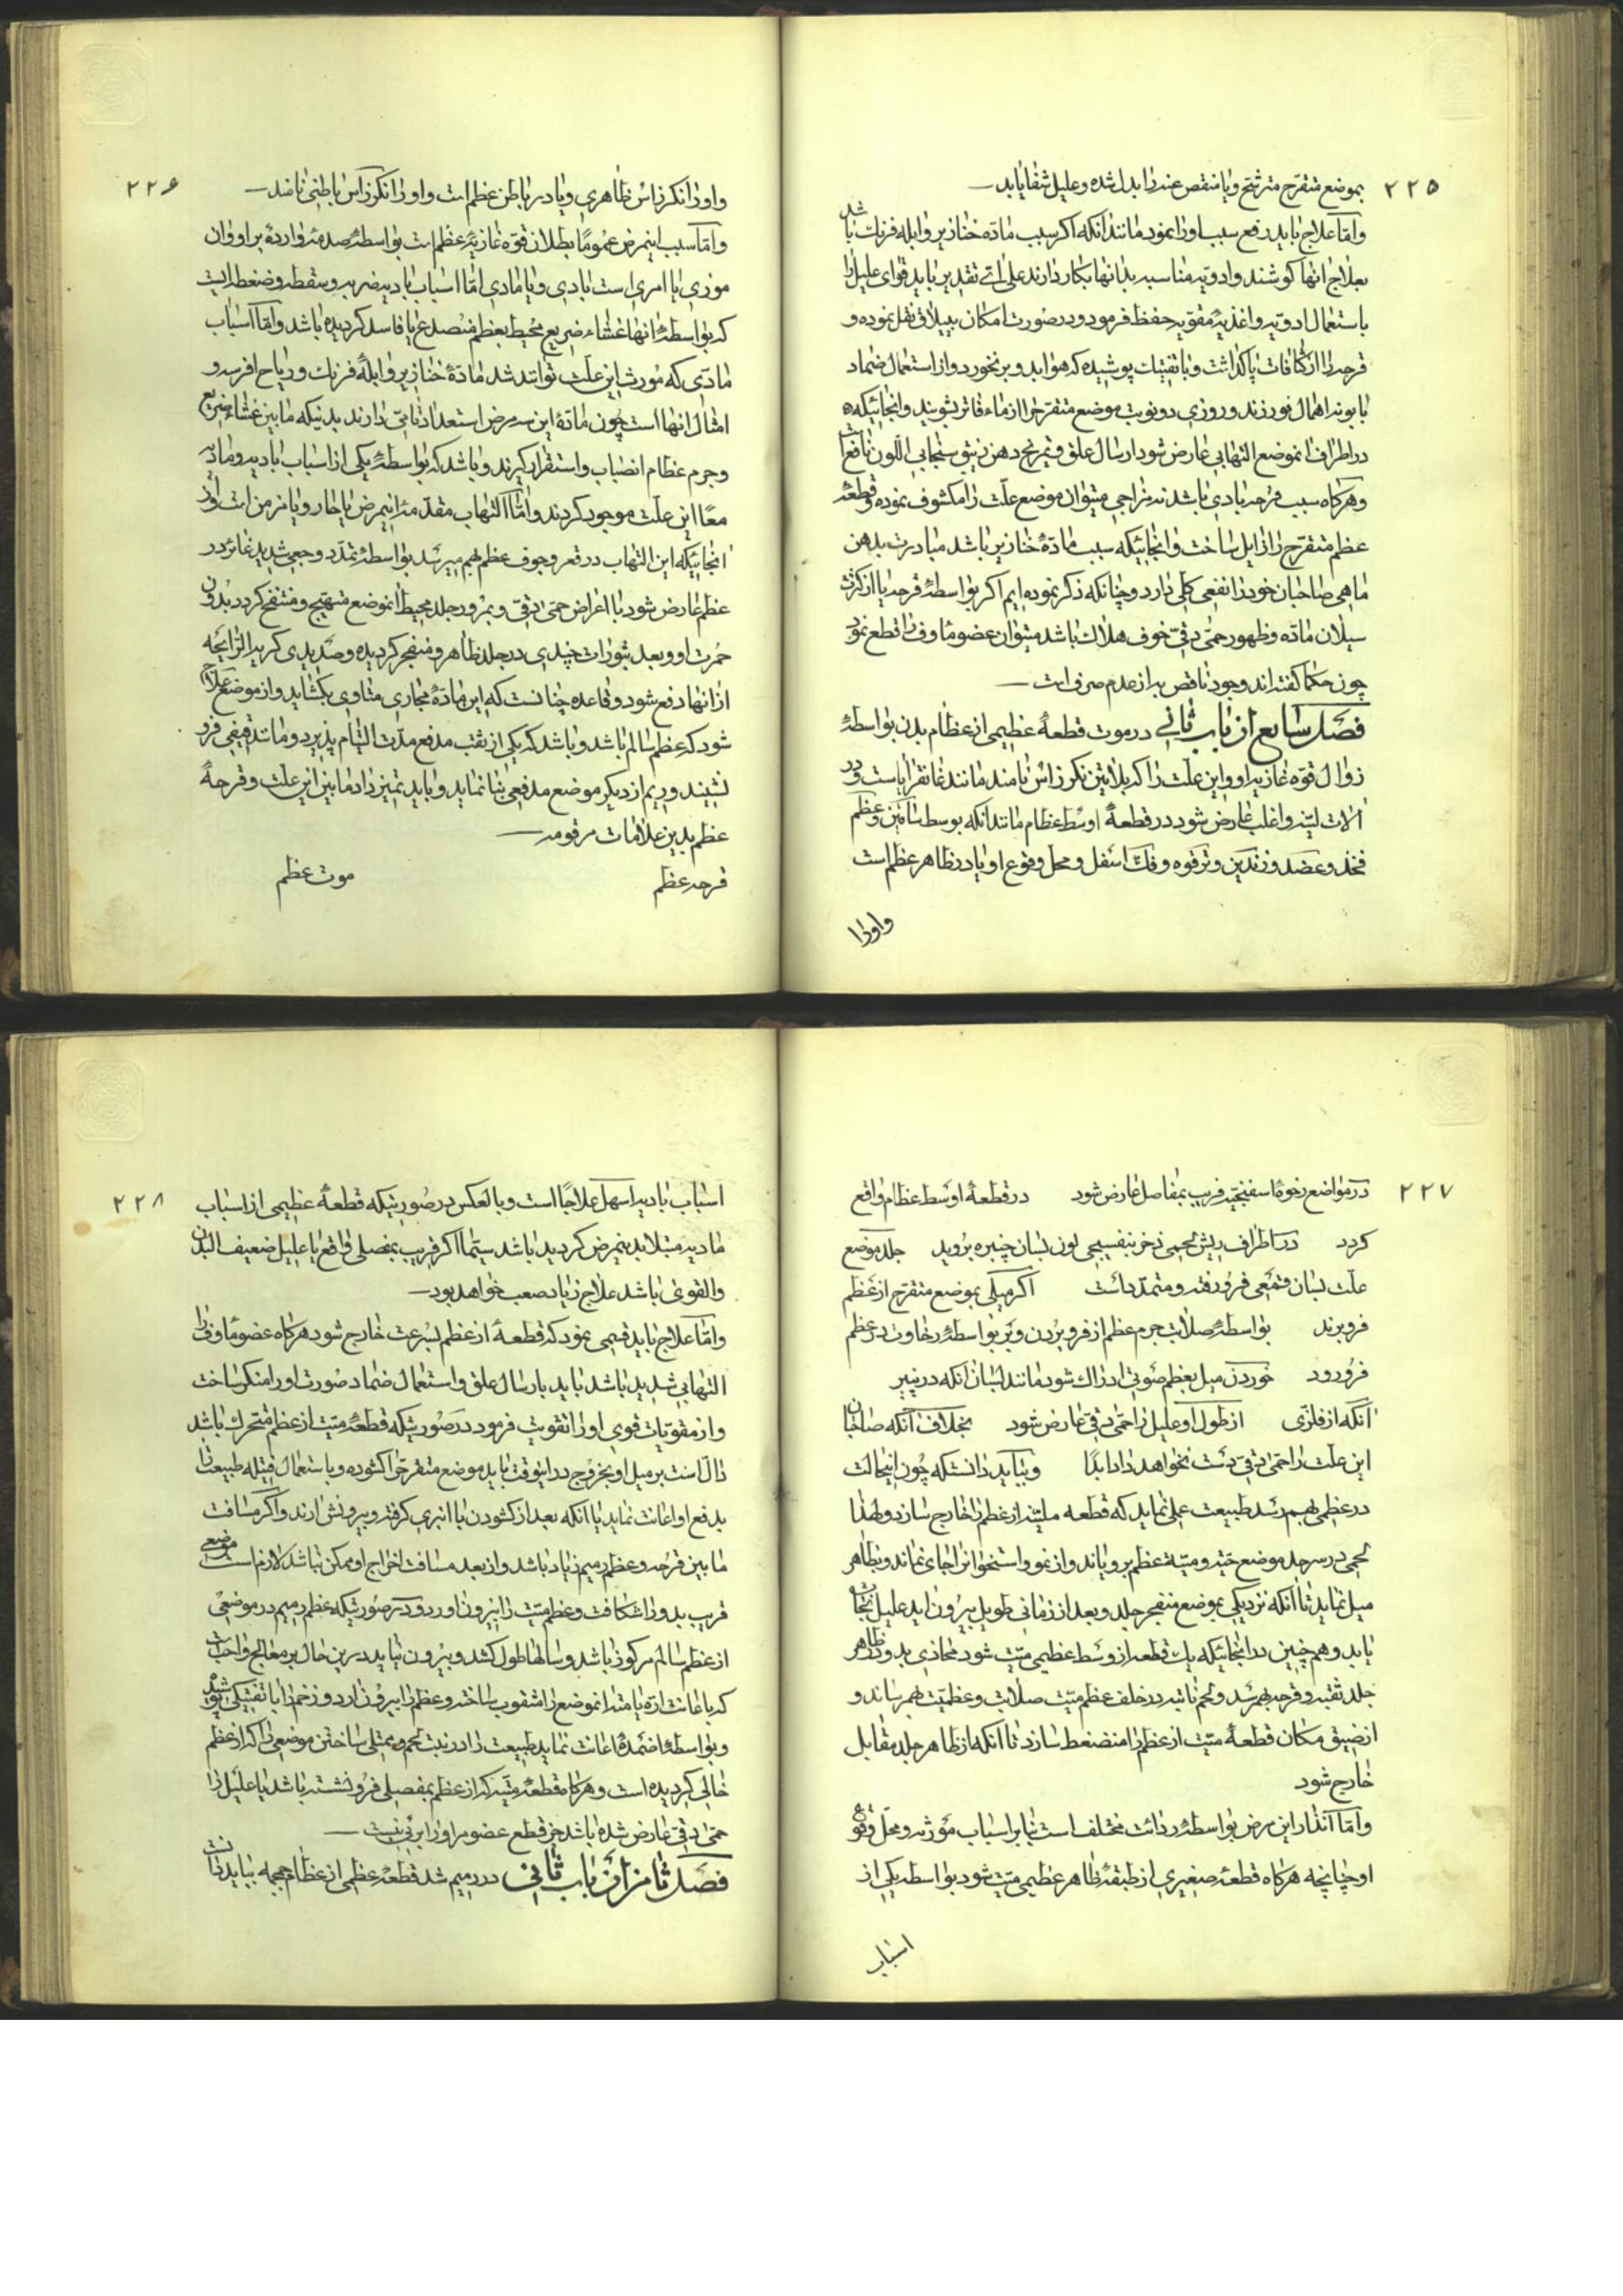 ٢٢٥
بموضع متقرح مترشح و یا منقص عند را بدل شده و علیل شفا یابد
و اما علاج باید رفع سبب او را نمود مانند آنکه اگر سبب مادّه خنازیر و ابله فرنک باشد
بعلاج انها کوشند و ادویه مناسبه بدانها بکار دارند علی اتی تقدیر باید قوای علیل را
باستعمال ادویه و اغذیه مقویه حفظ فرمود و در صورت امکان ببیلاق نقل نموده و
قرحه را از کثافات پاک داشت و با تفتیک پوشیده که هوا بد و بر نخورد و از استعمال ضماد
بابونه اهمال نورزند و روزی دو نوبت موضع متقرح را از ماء فاتر بشویند و انجائیکه
در اطراف انموضع التهابی عارض شود ارسال علق و تمریخ دهن زیبق سنجابی اللون نافع است
و هر کاه سبب قرحه بادی باشد نه مزاجی میتوان موضع علت را مکشوف نموده و قطعه
عظم متقرح را زایل ساخت و انجائیکه سبب مادّه خنازیر باشد مبادرت بدهن
ماهی صاحبان خود را نفعی کلی دارد و چنانکه ذکر نموده ایم اکر بواسطه قرحه یا از کثرت
سیلان مادّه و ظهور حمّی دقّ خوف هلاک باشد میتوان عضو ماوف را قطع نمود
چون حکما کفته اند وجود ناقص به از عدم صرف است
فصل سابع از باب ثانی در موت قطعهٔ عظیمی از عظام بدن بواسطهٔ
زوال قوّه غاذیه او و این علت را که بلاتین نکرزاس نامند مانند غانقرایاست در
آلات لینه و اغلب عارض شود در قطعهٔ اوسط عظام مانند انکه بوسط ساقین و عظم
فخذ و عضد و زندین و ترقوه و فک اسفل و محل وقوع او یا در ظاهر عظم است
و اورا
٢٢۶
و اورا نکرزاس ظاهری و یا در باطن عظم است و اورا نکرزاس باطنی نامند
و اما سبب اینمرض عموما بطلان قوّه غاذیهٔ عظم است بواسطهٔ صدمهٔ واردهٔ بر او و ان
موذی یا امری است بادی و یا مادی اما اسباب بادیه ضربه و سقطه و ضغطه است
که بواسطهٔ انها غشاء ضریع محیط بعظم منصدع یا فاسد کردیده باشد و اما اسباب
مادی که مورث این علت توانند شد مادّهٔ خنازیر و ابلهٔ فرنک و ریاح افرسه و
امثال انهااست چون مادّهٔ این سه مرض استعداد تامّی دارند بدینکه مابین غشاء ضریع
و جرم عظام انصباب و استقرار کیرند و باشد که بواسطهٔ یکی از اسباب بادیه و مادیه
معا این علت موجود کردند و اما التهاب مقدمهٔ اینمرض یا حار و یا مزمن است و از
انجائیکه این التهاب در قعر و جوف عظم بهم میرسد بواسطهٔ تمدد وجعی شدید غائر در
عظم عارض شود با اعراض حمّی دقّ و بمرور جلد محیط انموضع متهیج و منتفخ کردد بدون
حمرت او و بعد بثورات چندی در جلد ظاهر و منفجر کردیده و صدیدی کریه الرائحه
از انها دفع شود و قاعده چنانست که این مادّه مجاری متاوی بکشاید و از موضع خارج
شود که عظم سالم باشد و باشد که یکی از ثقب مدفع مدّت التیام پذیرد و مانند قیفی فرو
نشیند و ریم از دیکر موضع مدفعی بنا نماید و باید تمیز داد مابین این علت و قرحهٔ
عظم بدین علامات مرقومه
قرحه عظم موت عظم
٢٢٧
در مواضع رخوهٔ اسفنجیه قریب بمفاصل عارض شود در قطعهٔ اوسط عظام واقع
کردد در اطراف ریش لحمی زخر بنفسجی لون بسان خنبره بروید جلد موضع
علت بسان قمعی فرو رفته و متمدد است اکر میلی بموضع متقرح از عظم
فرو برند بواسطهٔ صلابت جرم عظم از فرو بردن و بر بواسطهٔ رخاوت در عظم
فرو رود خوردن میل بعظم صوتی ادراک شود مانند بسان انکه در پنیر
انکه از فلزی از طول او علیل را حمّی دقّ عارض شود بخلاف انکه صاحبان
این علت را حمّی دقّ دست نخواهد داد ابدًا و بباید دانست که چون اینحالت
در عظمی بهم رسد طبیعت عملی نماید که قطعه میته از عظم را خارج سازد و لهذا
لحمی در سرحد موضع حیه و میتهٔ عظم برویاند و از نمو و استخوانرا جای نماند و بظاهر
میل نماید تا انکه نزدیکی بموضع منفجر جلد و بعد از زمانی طویل بیرون اید علیل نجات
یابد و هم چنین در انجائیکه یک قطعه از وسط عظیمی میت شود محاذی بدو در ظاهر
جلد ثقبه و قرحه بهم رسد و لحم نابته در خلف عظم میت صلابت و عظمیت بهم رساند و
از ضیق مکان قطعهٔ میت از عظم را منضغط سازد تا انکه از ظاهر جلد مقابل
خارج شود
و اما انذار این مرض بواسطهٔ ردائت مختلف است بنا بر اسباب مؤثره و محل وقوع
او چنانچه هر کاه قطعهٔ صغیری از طبقهٔ ظاهر عظیمی میت شود بواسطه یکی از
اسباب
٢٢٨
اسباب بادیه اسهل علاجا است و بالعکس در صورتیکه قطعهٔ عظیمی از اسباب
مادیه مبتلا بدینمرض کردیده باشد سیّما اکر قریب بمفصلی واقع یا علیل ضعیف البدن
والقوی باشد علاج زیاد صعب خواهد بود
و اما علاج باید قیمی نمود که قطعهٔ از عظم بسرعت خارج شود هر کاه عضو ماوف را
التهابی شدید باشد باید بارسال علق و استعمال ضماد صورت اورا منکر ساخت
و از مقویات قوی اورا تقویت فرمود در صورتیکه قطعهٔ میت از عظم متحرک باشد
دال است بر میل او بخروج در اینوقت باید موضع متقرح را کشوده و باستعمال فتیله طبیعت را
بدفع او اعانت نماید یا انکه بعد از کشودن با انبری کرفته و بیرونش ارند و اکر مسافت
مابین قرحه و عظم رمیم زیاد باشد و از بعد مسافت اخراج او ممکن نباشد لازم است موضعی
قریب بدو را شکافت و عظم میت را بیرون اورد و در صورتیکه عظم رمیم در موضعی
از عظم سالم مرکوز باشد و سالها طول کشد و بیرون نیاید در این حال بر معالج واجب است
که باعانت ارّه یا متد انموضع را مثقوب ساخته و عظم را بیرون ارد و زخم را با تفتیکی پوشیده
و بواسطهٔ اضمدهٔ اعانت نماید طبیعت را در نبت لحم و ممتلی ساختن موضعی را که از عظم
خالی کردیده است و هر کاه قطعهٔ میته که از عظم بمفصلی فرو نشسته باشد یا علیل را
حمّی دقّ عارض شده باشد جز قطع عضو مر اورا بر نیست
فصل ثامن از باب ثانی در رمیم شد قطعهٔ عظمی از عظام جمجمه بباید دانست